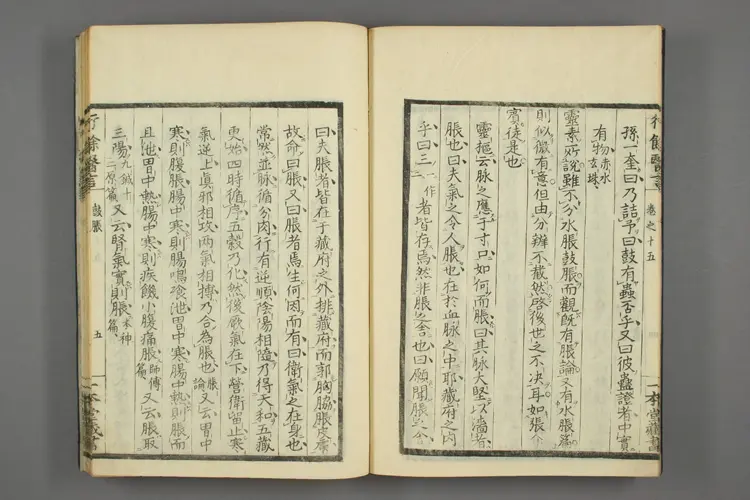 行餘醫言
卷之十五
孫一奎曰乃詰予曰鼓有蟲否乎又曰彼蠱證者中實
有物赤水玄珠
靈素所說雖不分水脹鼓脹而觀既有脹論又有水脹篇
則似微有意但由分辨不截然啓後世之不決耳如張介
賓徒是也
靈樞云脉之應于寸口如何而脹曰其脉大堅以濇者
脹也曰夫氣之令人脹也在於血脉之中耶藏府之內
乎曰三一作二者皆存焉然非脹之舍也曰願聞脹之舍
曰夫脹者皆在于藏府之外排藏府而郭胸脇脹皮膚
故命曰脹又曰脹者焉生何因而有曰衛氣之在身也
常然並脉循分肉行有逆順陰陽相隨乃得天和五藏
更始四時循序五穀乃化然後厥氣在下營衛留止寒
氣逆上眞邪相攻兩氣相搏乃合為脹也脹論又云胃中
寒則腹脹腸中寒則腸鳴飧泄胃中寒腸中熱則脹而
且泄胃中熱腸中寒則疾饑小腹痛脹師傳篇又云脹取
三陽九鍼十二原篇又云腎氣實則脹本神篇
行餘醫言
鼓脹
五
一本堂藏書